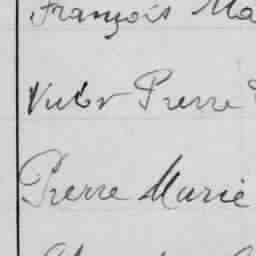 François Ma
Victor Pierre
Pierre Marie